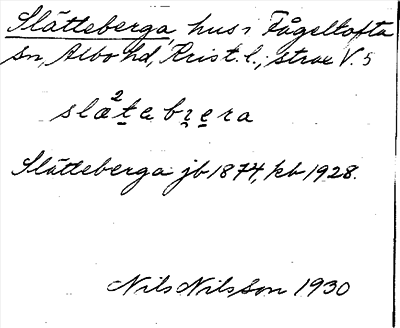 Slätteberga, hus i Fågeltofta
sn, Albo hd, Krist. l.; strax V. 5
Slätteberga jb 1874, kb 1928.
Nils Nilsson 1930